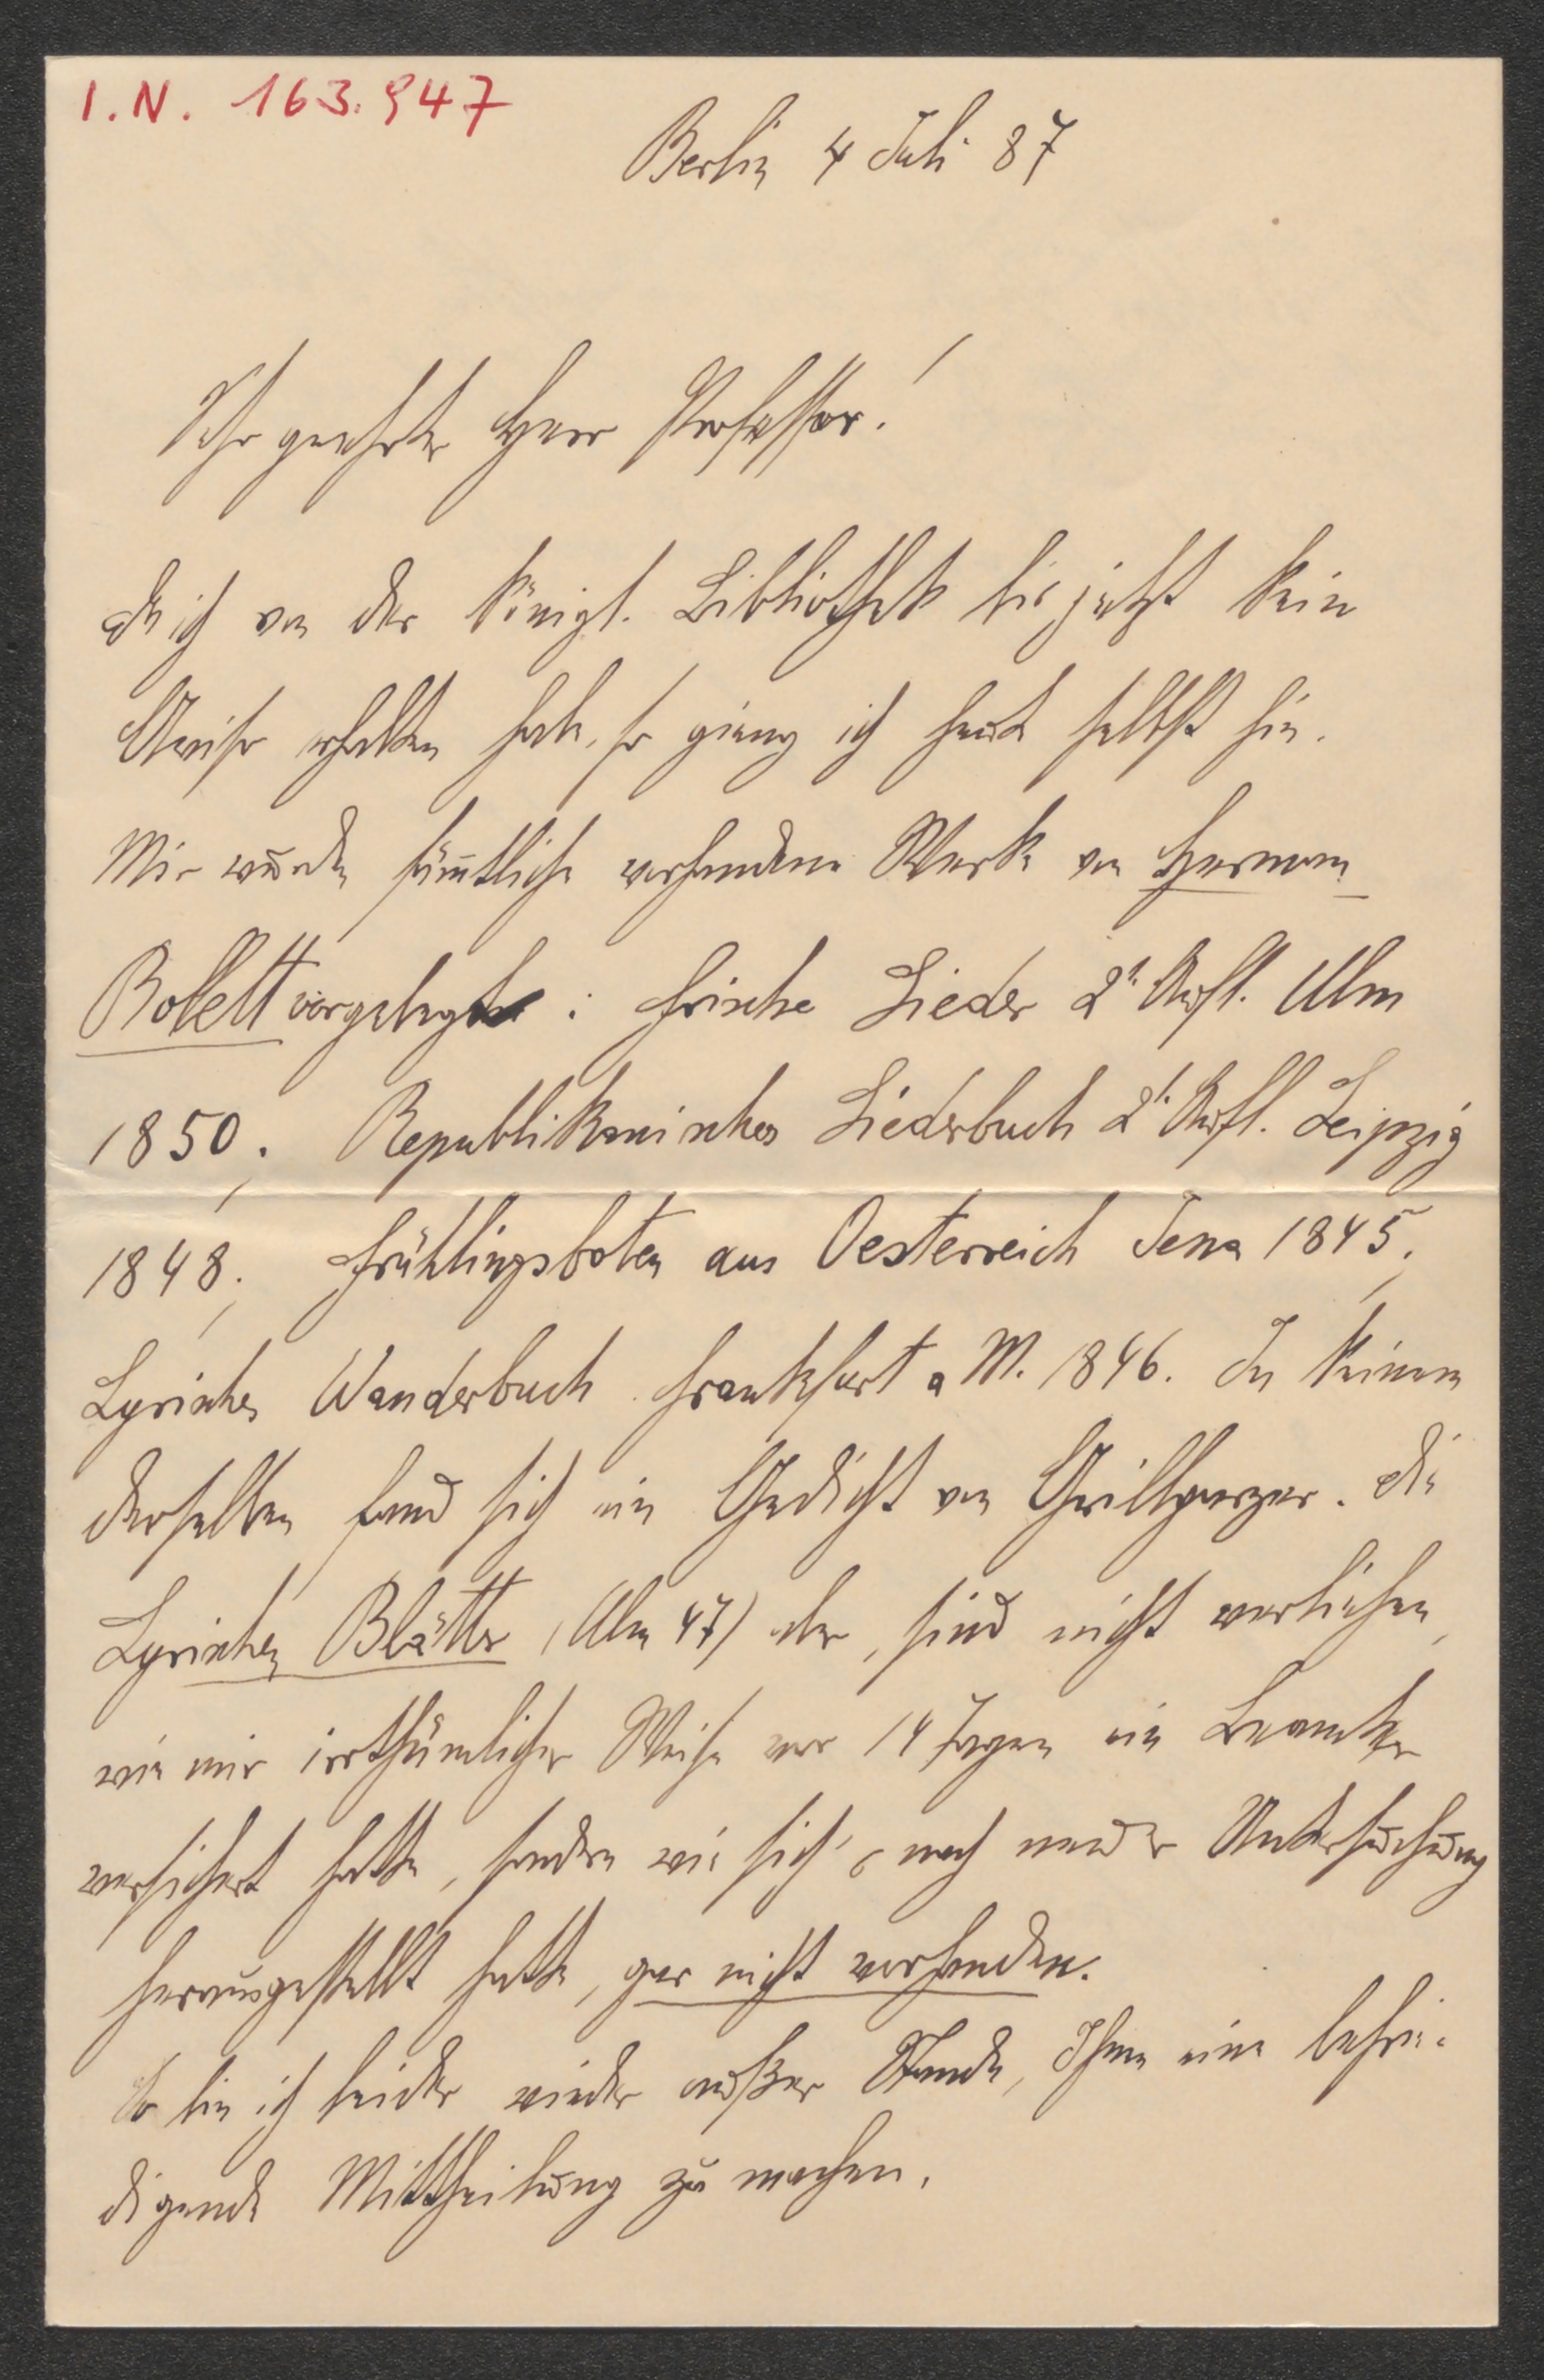 I.N. 163.947
Berlin 4 Juli 87
Sehr geehrter Herr Professor!
Da ich von der Königl. Bibliothek bis jetzt kein
Avviso erhalten habe, so gieng ich heute selbst hin.
Mir wurden sämtliche vorhandene Werke von Hermann
Rollett vorgelegt: Frische Lieder 2te Aufl. Ulm
1850; Republikanisches Liederbuch 2te Aufl. Leipzig
1848; Frühlingsboten aus Oesterreich Jena 1845;
Lyrisches Wanderbuch Frankfurt a M. 1846. In keinem
derselben fand sich ein Gedicht von Grillparzer. Die
Lyrischen Blätter (Ulm 47) aber, sind nicht verliehen,
wie mir irrthümlicher Weise vor 14 Tagen ein Beamter
versichert hatte, sondern wie sich nach neuer Untersuchung
herausgestellt hatte, gar nicht vorhanden.
So bin ich leider wieder außer Stande, Ihnen eine befrie-
digende Mittheilung zu machen.